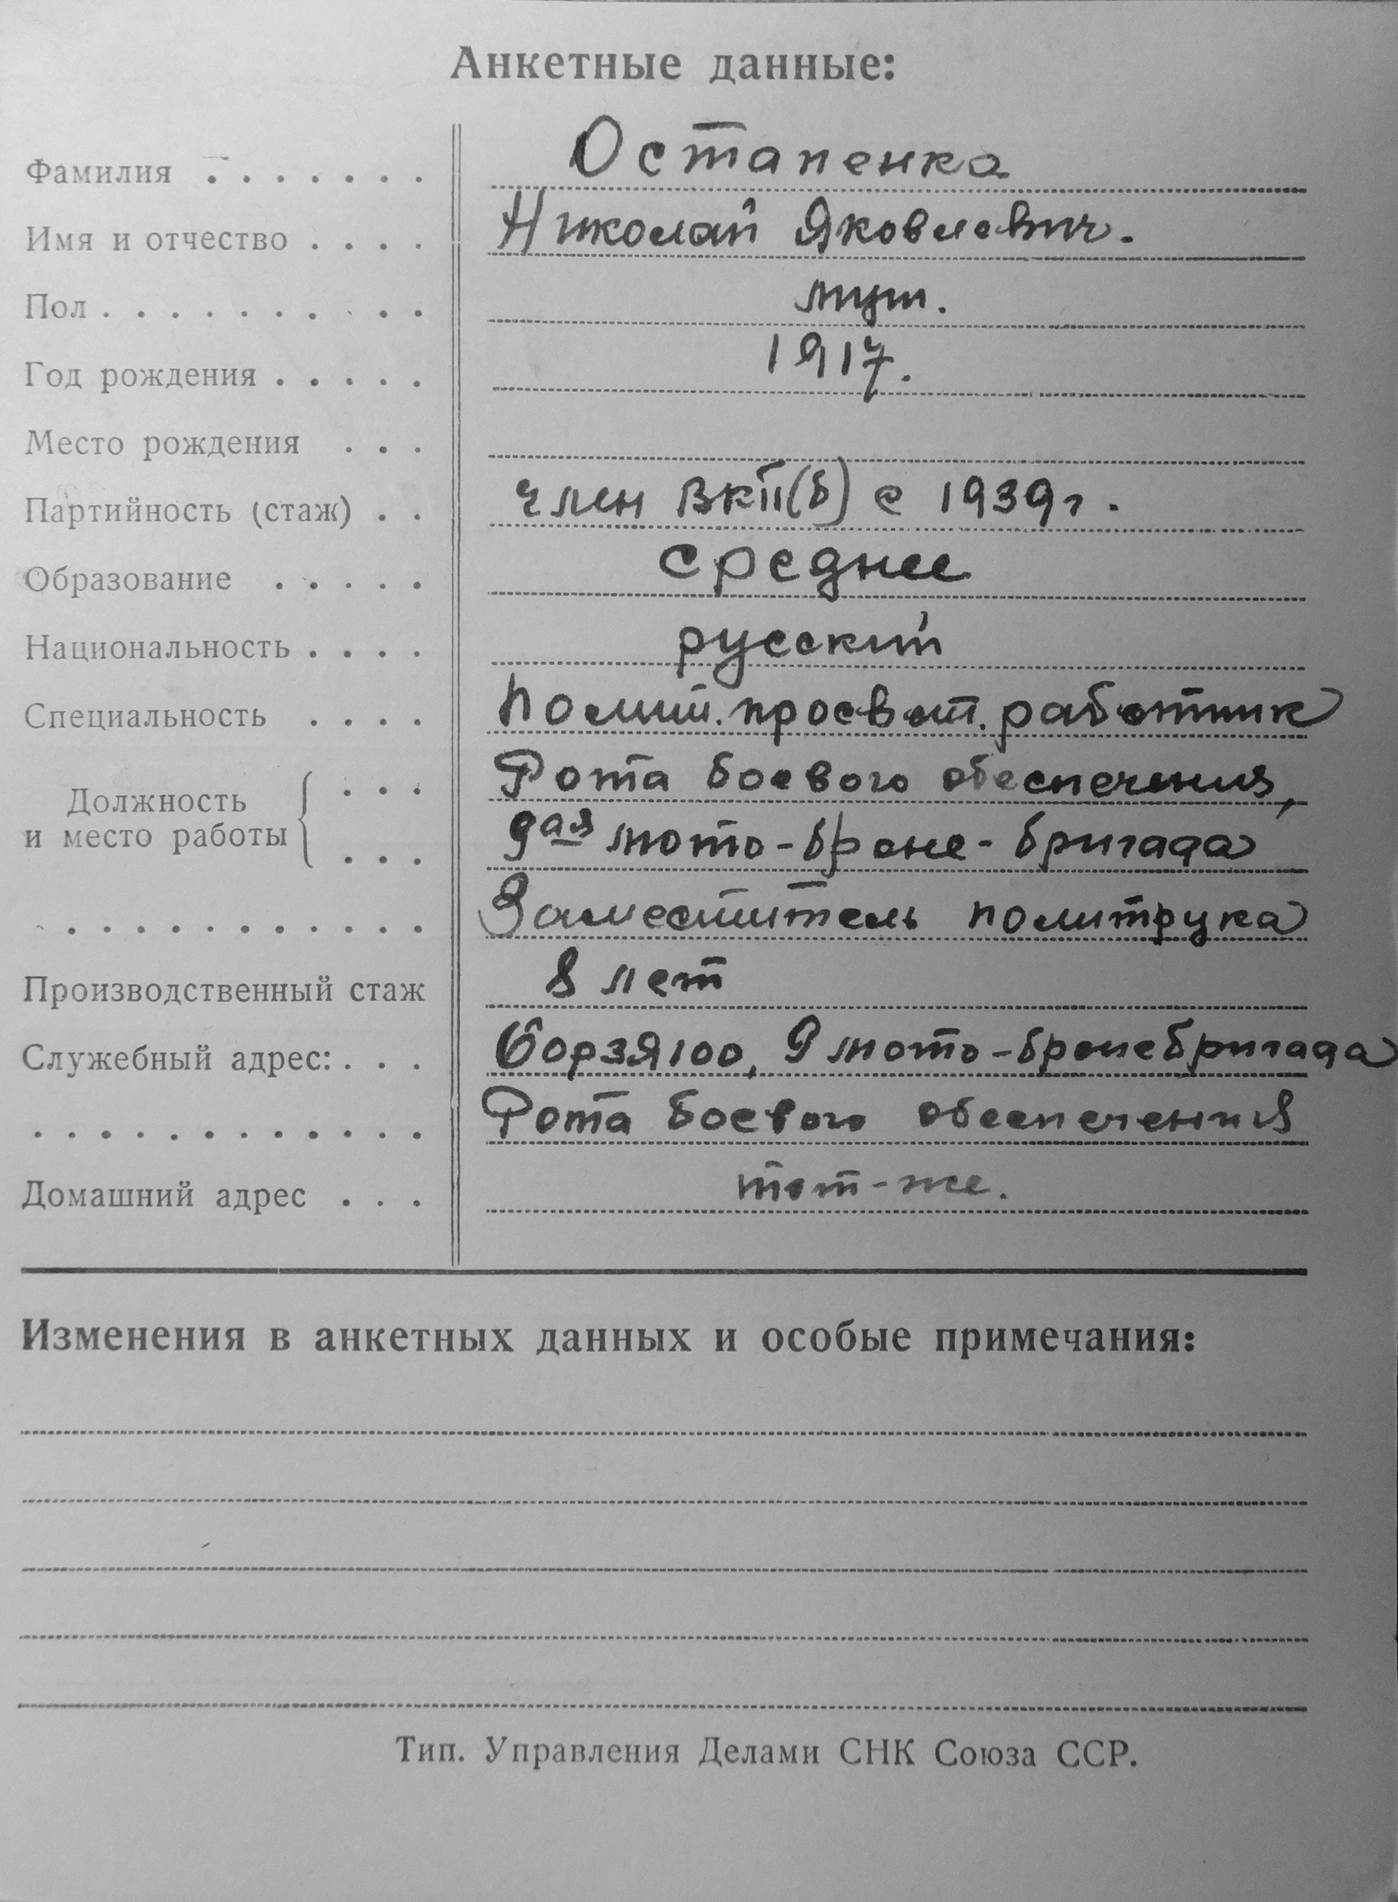 Анкетные данные:
Фамилия . . . . . . . Остапенко
Имя и отчество . . . . Николай Яковлевич.
Пол . . . . . . . . . . муж.
Год рождения . . . . . 1917.
Место рождения . . .
Партийность (стаж) . . член ВКП(б) с 1939г.
Образование . . . . . среднее
Национальность . . . . русский
Специальность . . . . Полит. просвет. работник
Должность и место работы . . . Рота боевого обеспечения,
. . . 9ая мото-броне-бригада
. . . . . . . . . . . . Заместитель политрука
Производственный стаж 8 лет
Служебный адрес: . . . Борзя 100, 9 мото-бронебригада
. . . . . . . . . . . . Рота боевого обеспечения
Домашний адрес . . . тот-же.
Изменения в анкетных данных и особые примечания:
Тип. Управления Делами СНК Союза ССР.